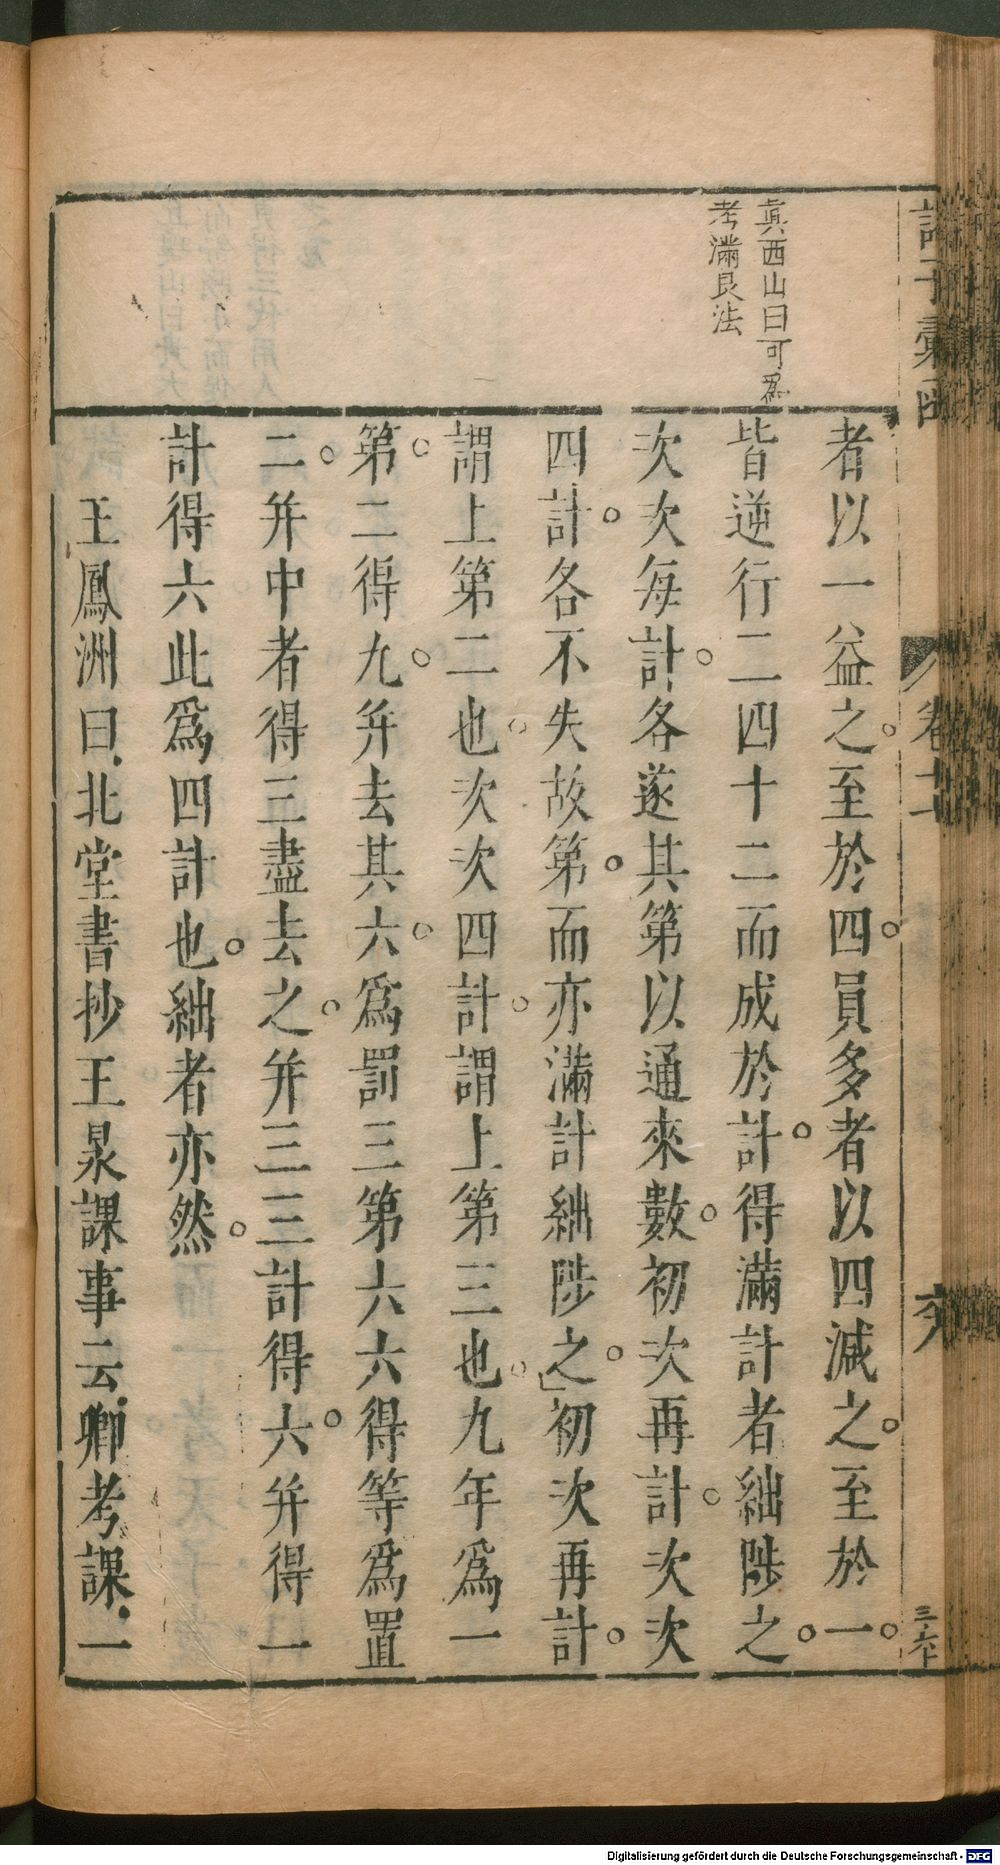 諸子彙函
卷十二
三六
真西山曰可爲
考滿良法
者以一益之至於四員多者以四減之至於一
皆逆行二四十二而成於計得滿計者絀陟之
次次每計各遂其第以通來數初次再計次次
四計各不失故第而亦滿計絀陟之初次再計
謂上第二也次次四計謂上第三也九年爲一
第二得九并去其六爲罰三第六六得等爲置
二并中者得三盡去之并三三計得六并得一
計得六此爲四計也絀者亦然
王鳳洲曰北堂書抄王泉課事云卿考課一
Digitalisierung gefördert durch die Deutsche Forschungsgemeinschaft - DFG